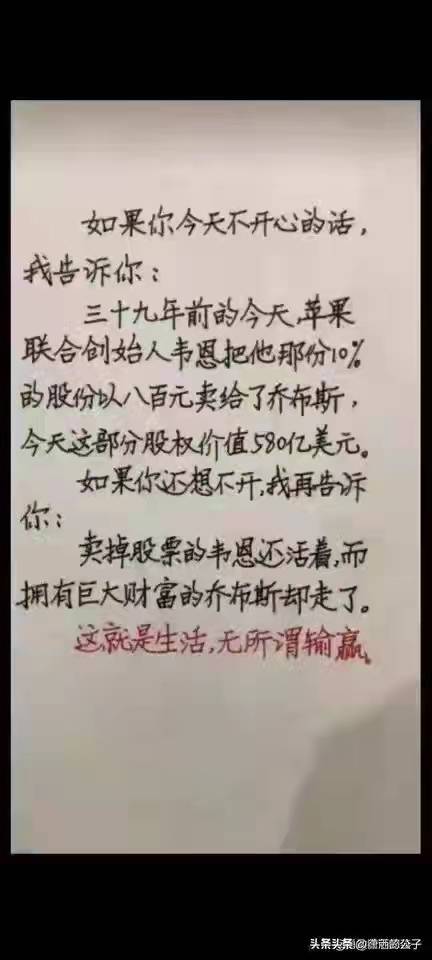 如果你今天不开心的话,
我告诉你:
三十九年前的今天,苹果
联合创始人韦恩把他那份10%
的股份以八百元卖给了乔布斯,
今天这部分股权价值580亿美元。
如果你还想不开,我再告诉
你:
卖掉股票的韦恩还活着,而
拥有巨大财富的乔布斯却走了。
这就是生活,无所谓输赢。
头条头条@潇洒的公子